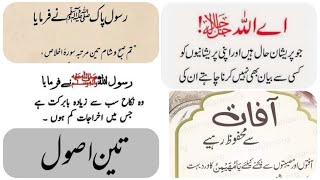 رسول پاک ﷺ نے فرمایا
"تم صبح و شام تین مرتبہ سورۃ اخلاص،
رسول اللہ ﷺ نے فرمایا
وہ نکاح سب سے زیادہ بابرکت ہے
جس میں اخراجات کم ہوں۔
تین اصول
اے اللہ ﷻ!
جو پریشان حال ہیں اور اپنی پریشانیوں کو
کسی سے بیان بھی نہیں کرنا چاہتے ان کی
آفات
سے محفوظ رہیے
آفتوں اور مصیبتوں سے بچنے کیلئے یَامُھَیْمِنُ کا ورد بہت